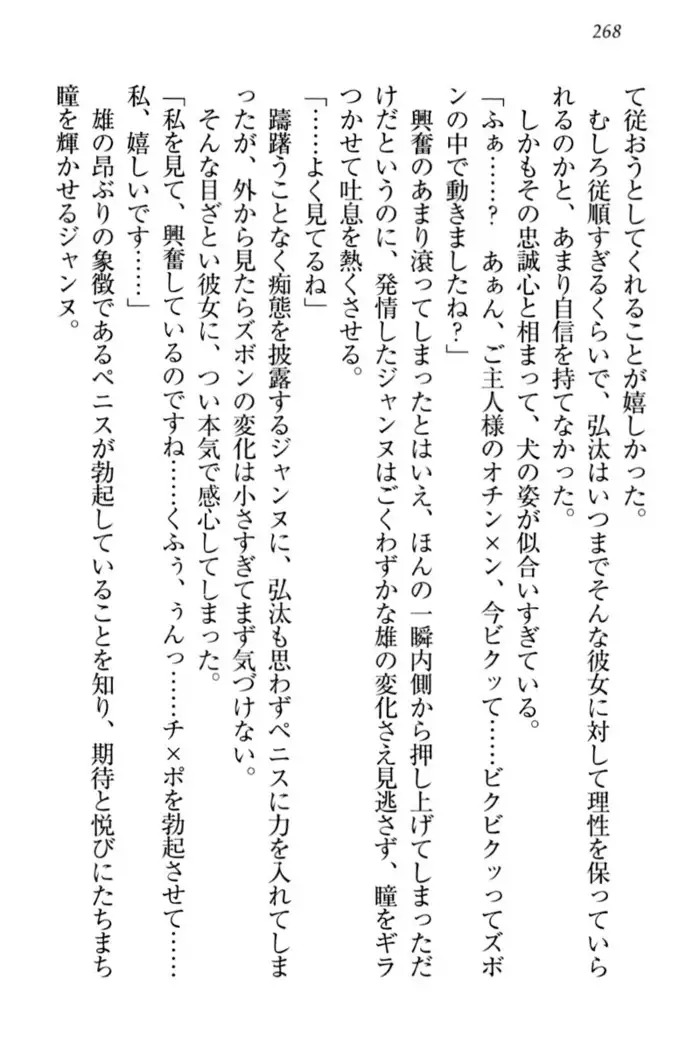 268
て従おうとしてくれることが嬉しかった。
　むしろ従順すぎるくらいで、弘汰はいつまでそんな彼女に対して理性を保っていら
れるのかと、あまり自信を持てなかった。
　しかもその忠誠心と相まって、犬の姿が似合いすぎている。
「ふぁ……？　あぁん、ご主人様のオチン×ン、今ビクッて……ビクビクッってズボ
ンの中で動きましたね？」
　興奮のあまり滾ってしまったとはいえ、ほんの一瞬内側から押し上げてしまっただ
けだというのに、発情したジャンヌはごくわずかな雄の変化さえ見逃さず、瞳をギラ
つかせて吐息を熱くさせる。
「……よく見てるね」
　躊躇うことなく痴態を披露するジャンヌに、弘汰も思わずペニスに力を入れてしま
ったが、外から見たらズボンの変化は小さすぎてまず気づけない。
　そんな目ざとい彼女に、つい本気で感心してしまった。
「私を見て、興奮しているのですね……くふぅ、うんっ……チ×ポを勃起させて……
私、嬉しいです……」
　雄の昂ぶりの象徴であるペニスが勃起していることを知り、期待と悦びにたちまち
瞳を輝かせるジャンヌ。